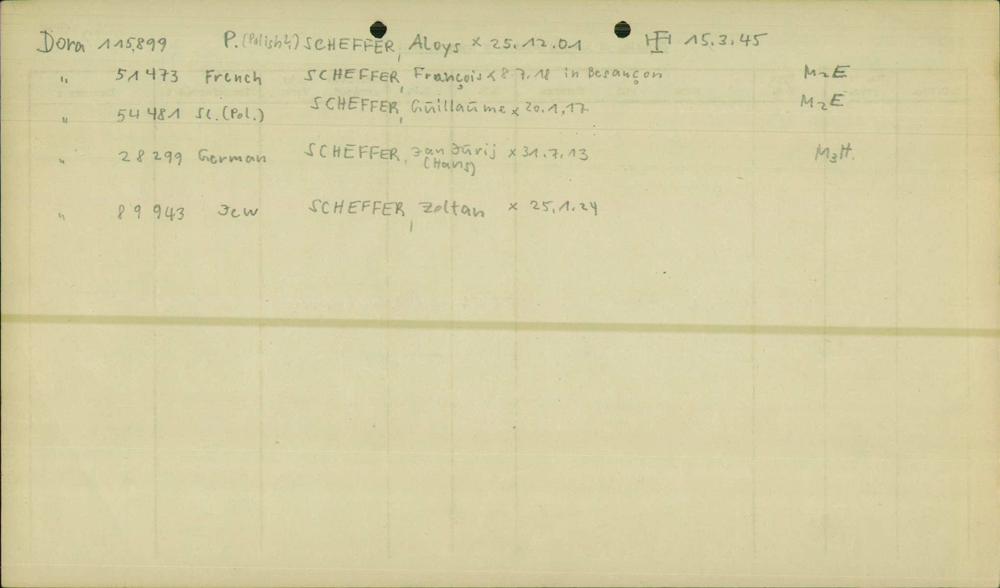 Dora 115899 P. (Polish) SCHEFFER, Aloys × 25.12.01 15.3.45
" 51473 French SCHEFFER, François × 8.7.18 in Besançon M2E
" 54481 Sl. (Pol.) SCHEFFER, Guillaume × 20.1.17 M2E
" 28299 German SCHEFFER, Jan Jürij × 31.7.13 M3H.
(Hans)
" 89943 Jew SCHEFFER, Zoltan × 25.1.24